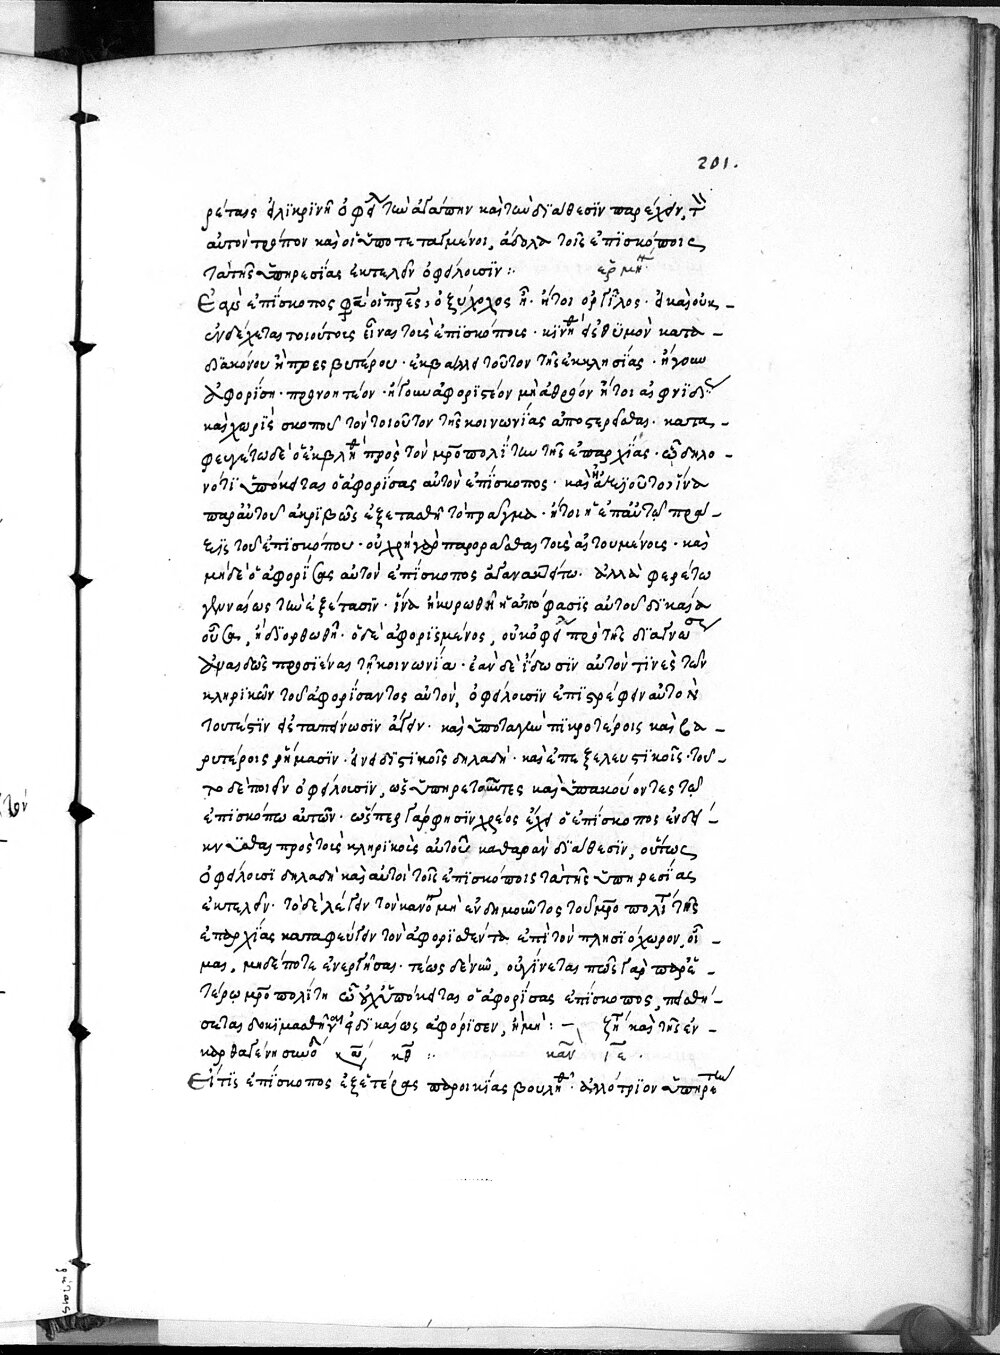 201.
ρέταις εἰλικρινῆ ὀφεί τὴν ἀγάπην καὶ τὴν διάθεσιν παρέχειν, τ
αὐτὸν τρόπον καὶ οἱ ὑποτεταγμένοι, ἄδολα τοῖς ἐπισκόποις
τὰ τῆς ὑπηρεσίας ἐκτελεῖν ὀφείλουσιν: ἑρμη
Ἐὰν ἐπίσκοπος φα οἱ πρες, ὀξύχολος ἢ· ἤτοι ὀργίλος· εἰ καὶ οὐκ
ἐνδέχεται τοιούτοις εἶναι τοῖς ἐπισκόποις· κινηθ δὲ θυμὸν κατὰ
διακόνου ἢ πρεσβυτέρου· ἐκβάλλει τοῦτον τῆς ἐκκλησίας· ἤγουν
ἀφορίση· προνοητέον· ἤγουν ἀφοριστέον μὴ ἀθρόον ἤτοι αἰφνιδι
καὶ χωρὶς σκοποῦ τὸν τοιοῦτον τῆς κοινωνίας ἀποστερεῖσθαι· κατα-
φευγέτω δὲ ὁ ἐκβληθ πρὸς τὸν μροπολίτην τῆς ἐπαρχίας· ᾧ δηλο-
νότι ὑπόκειται ὁ ἀφορίσας αὐτὸν ἐπίσκοπος· καὶ ἀξιούτο ἵνα
παρ' αὐτοῦ ἀκριβῶς ἐξετασθῆ τὸ πρᾶγμα· ἤτοι ἡ ἐπ' αὐτῷ πρᾶ-
ξις τοῦ ἐπισκόπου· οὐ χρὴ γὰρ παρορᾶσθαι τοὺς αἰτουμένους· καὶ
μηδὲ ὁ ἀφορίσας αὐτὸν ἐπίσκοπος ἀγανακτείτω· ἀλλὰ φερέτω
γενναίως τὴν ἐξέτασιν· ἵνα ἢ κυρωθῆ ἡ ἀπόφασις αὐτοῦ δικαία
οὖσα, ἢ διορθωθῆ· ὁ δὲ ἀφορισμένος, οὐκ ὀφεί πρὸ τῆς διαγνώσ
ἀναιδῶς προσιέναι τῆ κοινωνία· ἐὰν δὲ ἴδωσιν αὐτὸν τινὲς τῶν
κληρικῶν τοῦ ἀφορίσαντος αὐτὸν, ὀφείλουσιν ἐπιστρέφειν αὐτὸν
τουτέστιν εἰς ταπείνωσιν ἄγειν· καὶ ὑποταγὴν πικροτέροις καὶ βα-
ρυτέροις ῥήμασιν· ἐνδεικτικοῖς δηλαδὴ· καὶ ἐπεξελευστικοῖς· τοῦ-
το δὲ ποιεῖν ὀφείλουσιν, ὡς ὑπηρετοῦντες καὶ ὑπακούοντες τῷ
ἐπισκόπω αὐτῶν· ὥσπερ γάρ φησιν χρέος ἔχει ὁ ἐπίσκοπος ἐνδεί-
κνυσθαι πρὸς τοὺς κληρικοὺς αὐτοῦ καθαρὰν διάθεσιν, οὕτως
ὀφείλουσι δηλαδὴ καὶ αὐτοὶ τοῖς ἐπισκόποις τὰ τῆς ὑπηρεσίας
ἐκτελεῖν· τὸ δὲ λέγειν τὸν κανόνα μὴ ἐνδημοῦντος τοῦ μροπολι τῆς
ἐπαρχίας καταφεύγειν τὸν ἀφορισθέντα ἐπὶ τὸν πλησιόχωρον, οἶ-
μαι, μηδέποτε ἐνεργῆσαι· τέως δὲ νῦν, οὐ γίνεται πῶς γὰρ παρ' ἑ-
τέρω μροπολίτη ᾧ οὐχ ὑπόκειται ὁ ἀφορίσας ἐπίσκοπος, πεισθή-
σεται δοκιμασθῆναι εἰ δικαίως ἀφόρισεν, ἢ μὴ: — ζη καὶ τῆς ἐν
καρθαγένη συνοδ κα κθ: καν ιε.
Εἴ τις ἐπίσκοπος ἐξ ἑτέρας παροικίας βουληθ ἀλλότριον ὑπηρε